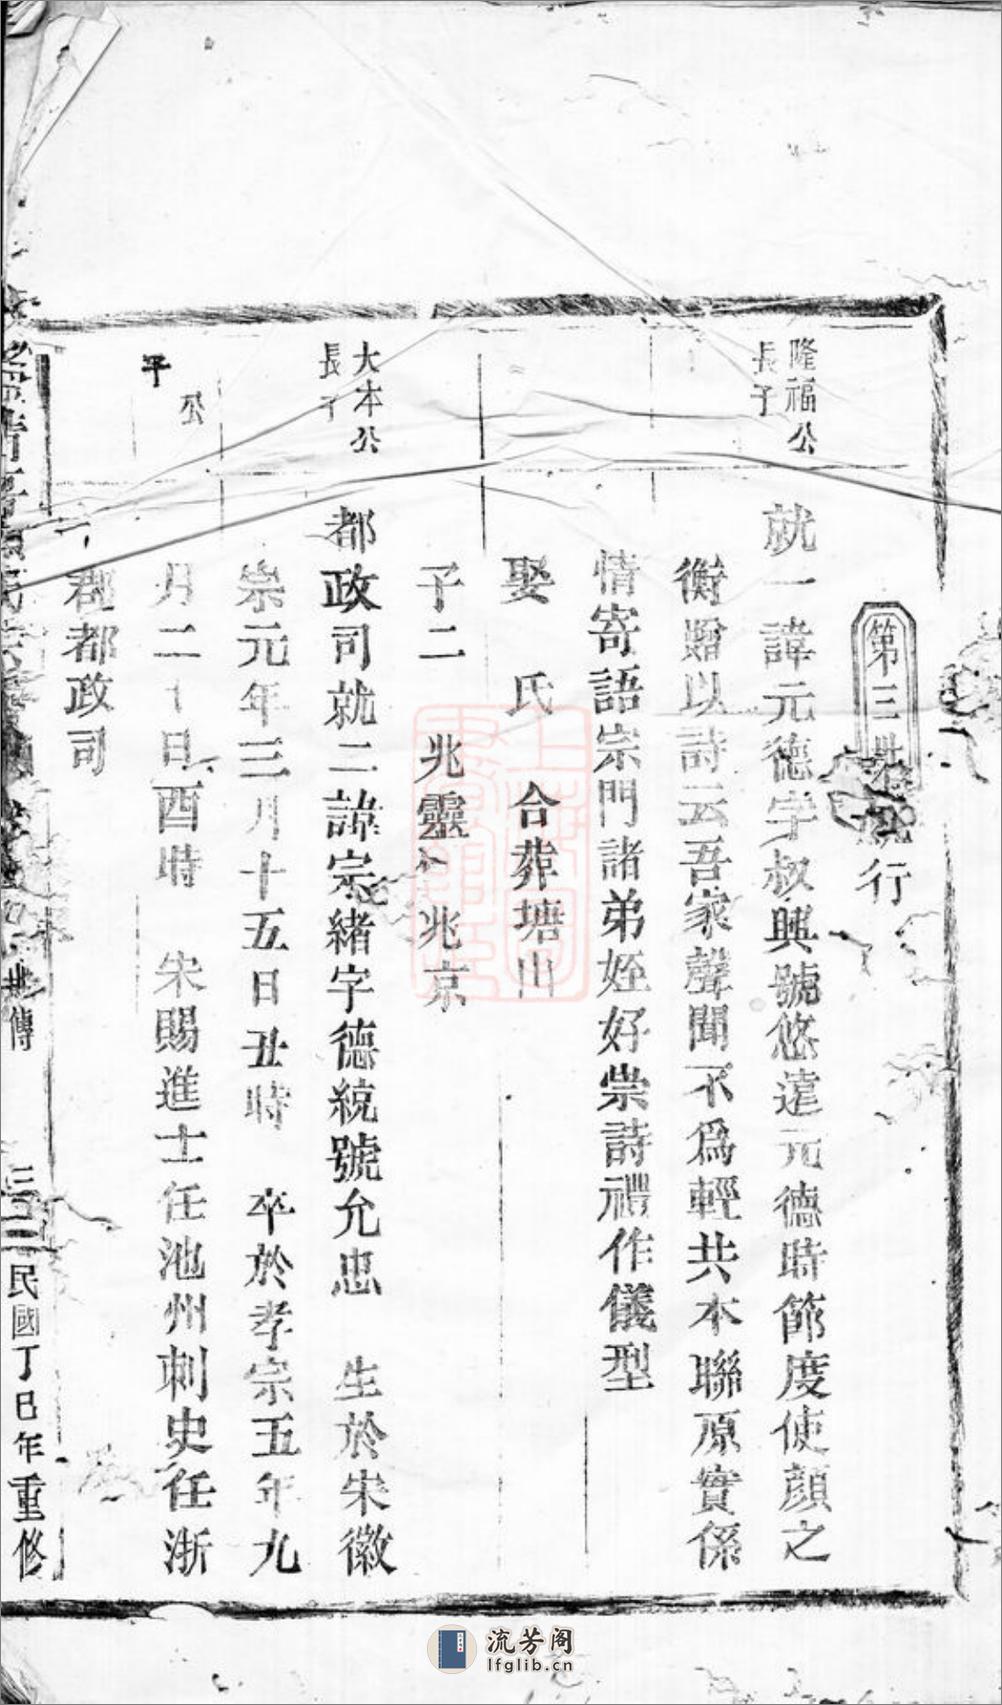 第三世 行
隆福公
長子
就一諱元德字叔興號悠遠元德時節度使顔之
衡贈以詩云吾家聲聞不為輕共本聯原實係
情寄語宗門諸弟姪好崇詩禮作儀型
娶 氏 合葬塘山
子二 兆靈 兆京
大本公
長子
都政司就二諱宗緒字德統號允忠 生於宋徽
崇元年三月十五日丑時 卒於孝宗五年九
月二十日酉時 宋賜進士任池州刺史任浙
公
平
郡都政司
世傳
民國丁巳年重修
流芳阁
lfglib.cn